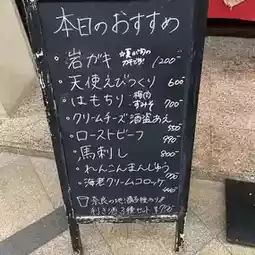 本日のおすすめ
・岩ガキ 1200
・天使えびつくり 600
・はもちり 梅肉 すみそ 700
・クリームチーズ酒盗あえ 550
・ローストビーフ 990
・馬刺し 800
・れんこんまんじゅう
・海老クリームコロッケ 440
奈良の地酒
利き酒3種セット